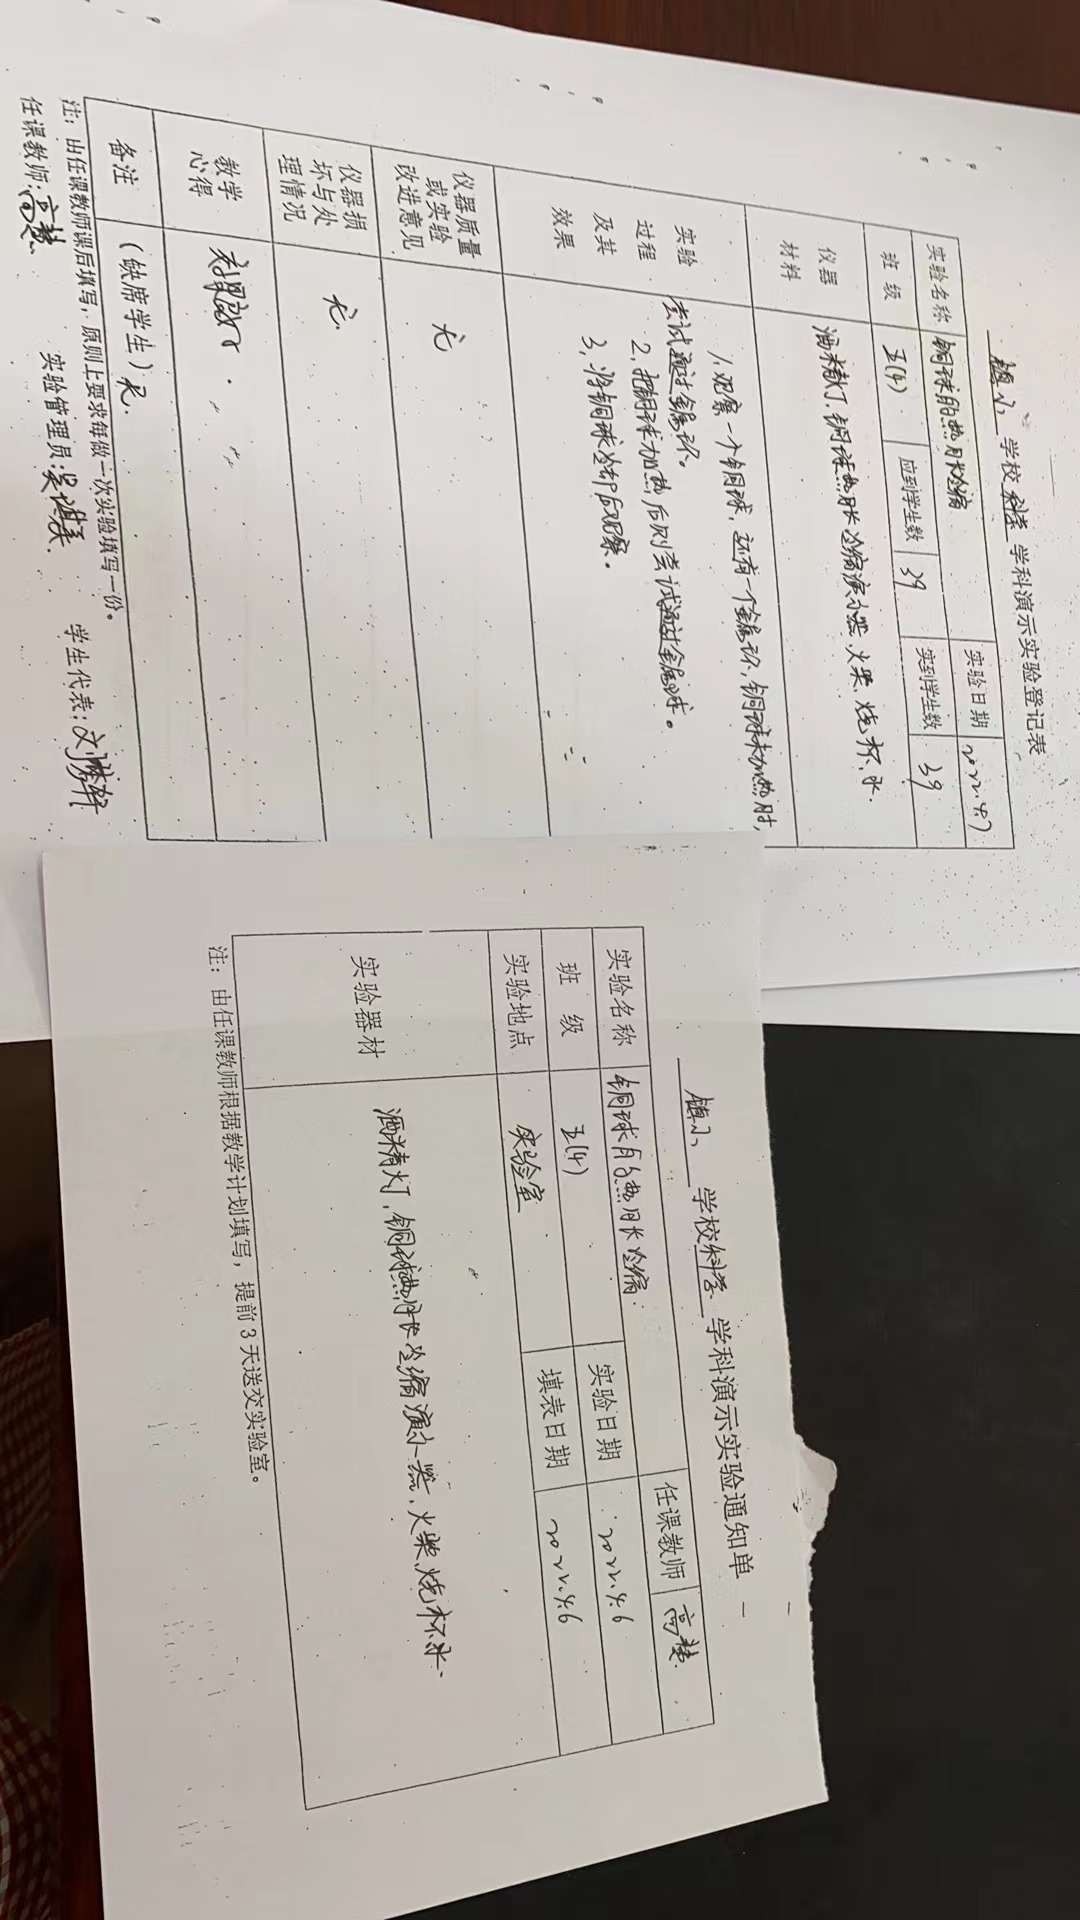 镇小 学校 科学 学科演示实验登记表
实验名称 铜球的热胀冷缩 实验日期 2022.4.7
班级 五(4) 应到学生数 39 实到学生数 39
仪器材料 酒精灯、铜球热胀冷缩演示器、火柴、烧杯、水.
实验过程及其效果
1、观察一个铜球,还有一个金属环,铜球未加热时,
尝试通过金属环。
2、把铜球加热后则尝试通过金属球。
3、将铜球冷却后观察。
仪器质量或实验改进意见 无
仪器损坏与处理情况 无.
教学心得
备注 (缺席学生)无.
注:由任课教师课后填写,原则上要求每做一次实验填写一份。
任课教师: 实验管理员: 学生代表:
镇小 学校 科学 学科演示实验通知单
实验名称 铜球的热胀冷缩. 任课教师 高
班级 五(4) 实验日期 2022.4.6
实验地点 实验室 填表日期 2022.4.6
实验器材 酒精灯、铜球热胀冷缩演示器、火柴、烧杯、水.
注:由任课教师根据教学计划填写,提前3天送交实验室。